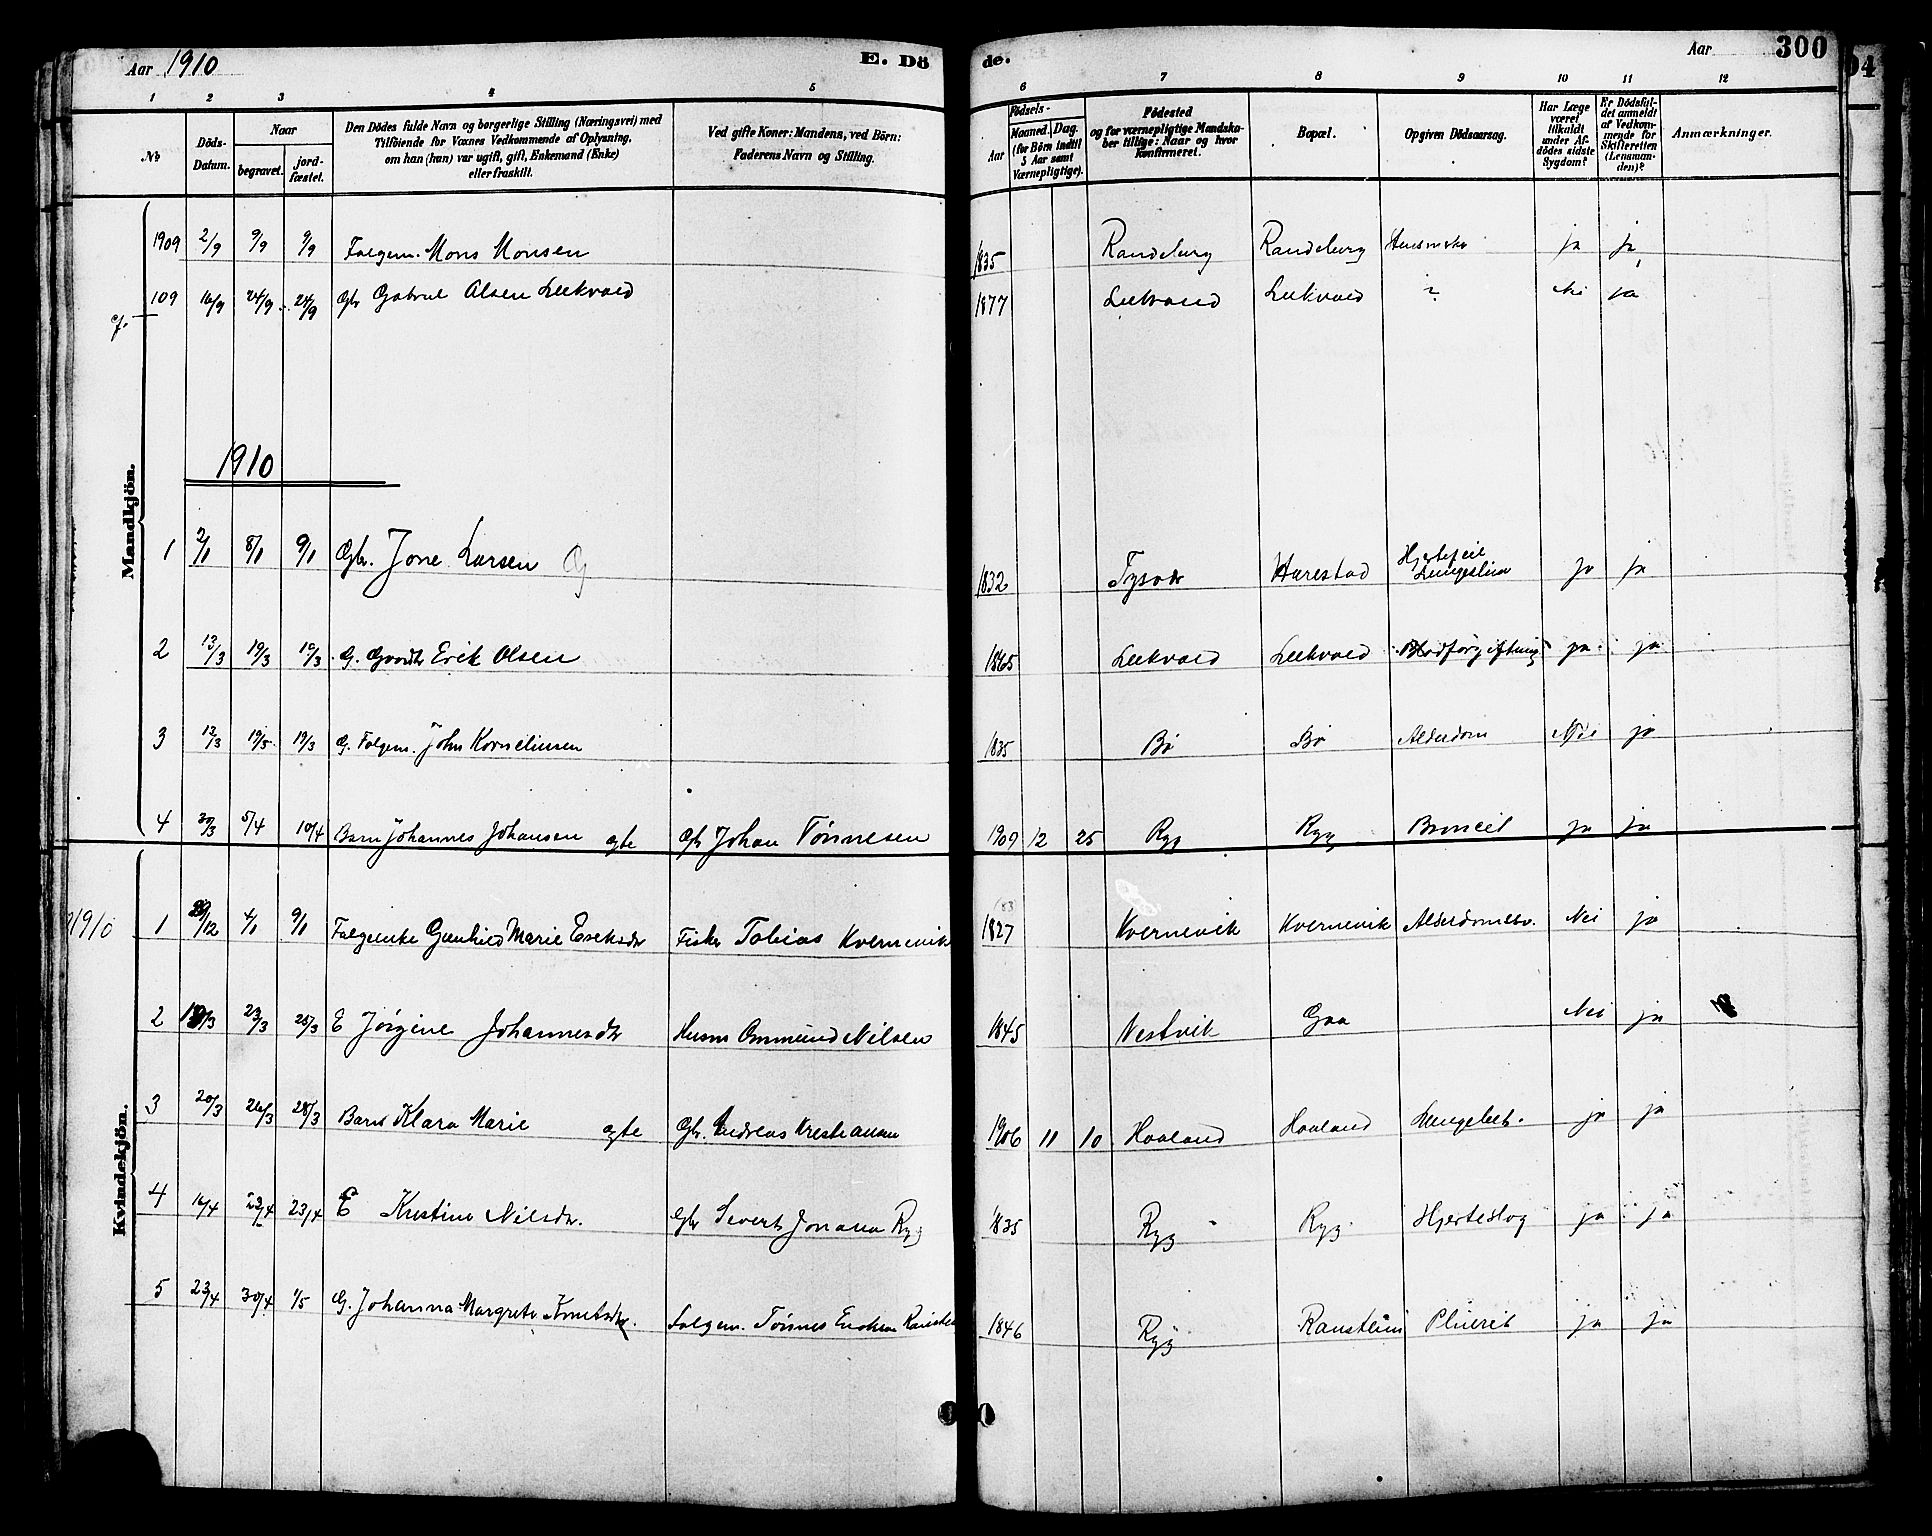 Aar 1910 E. Dö de. Aar 300
1 2 3 4 5 6 7 8 9 10 11 12
№
Döds-Datum.
Naar
begravet.
jord-fæstet.
Den Dödes fulde Navn og borgerlige Stilling (Næringsvei) med
Tilföiende for Voxnes Vedkommende af Oplysning,
om han (hun) var ugift, gift, Enkemand (Enke)
eller fraskilt.
Ved gifte Koner: Mandens, ved Börn:
Faderens Navn og Stilling.
Födsels-
Aar
Maaned. Dag.
(for Börn indtil
5 Aar samt
Værnepligtige).
Födested
og for værnepligtige Mandska-
ber tillige: Naar og hvor
Konfirmeret.
Bopæl.
Opgiven Dödsaarsag.
Har Læge
været
tilkaldt
under Af-
dödes sidste
Sygdom?
Er Dödsfal-
det anmeldt
af Vedkom-
mende for
Skifteretten
(Lensman-
den)?
Anmærkninger.
Mandkjön.
1909 2/9 9/9 9/9 Folgem. Mons Monsen 1835 Randeberg Randeberg ja ja
109 16/9 24/9 24/9 Gbr Gabriel Olsen Leikvold 1877 Leikvold Leikvold ? Nei ja
1910
1 2/1 8/1 9/1 Gbr. Jone Larsen G 1832 Tysvær Harestad Hjertefeil ja ja
2 13/3 19/3 19/3 G. Gaardbr Erik Olsen 1865 Leikvold Leikvold Blodforgiftning ja ja
3 12/3 19/3 19/3 G. Folgem. John Kornelinsen 1835 Bø Bø Alderdom Nei ja
4 30/3 5/4 10/4 Barn Johannes Johansen egte Gbr Johan Tønnesen 1909 12 25 Ryg Ryg ja ja
Kvindekjön.
1910 1 29/12 4/1 9/1 Folgeenke Gunhild Marie Eriksdr Fisker Tobias Kvernevik 1827 Kvernevik Kvernevik Nei ja
2 23/3 28/3 E Jørgine Johannesdr Husm Ommund Nilsen 1845 Nestvik Goa Nei ja
3 20/3 26/3 28/3 Barn Klara Marie egte Gbr. Andreas Kristiansen 1906 11 10 Haaland Haaland Lungebet. ja ja
4 16/4 23/4 23/4 E Kristine Nilsdr. Gbr Sivert Jonasen Ryg 1835 Ryg Ryg Hjerteslag ja ja
5 23/4 30/4 1/5 G. Johanna Margrete Knutsdr. Folgem. Tønnes 1846 Ryg Ranstein Pluerit ja ja